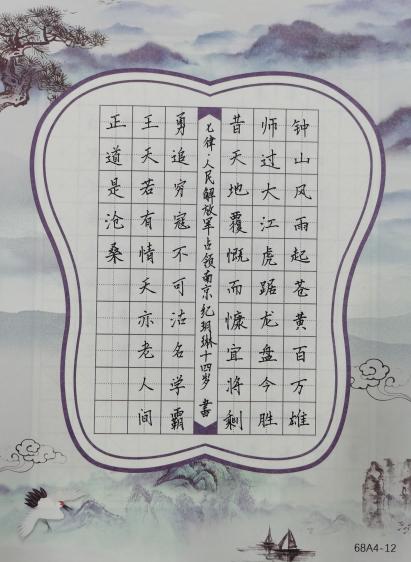 钟山风雨起苍黄百万雄
师过大江虎踞龙盘今胜
昔天地覆慨而慷宜将剩
七律·人民解放军占领南京 纪玥琳十四岁 书
勇追穷寇不可沽名学霸
王天若有情天亦老人间
正道是沧桑
68A4-12